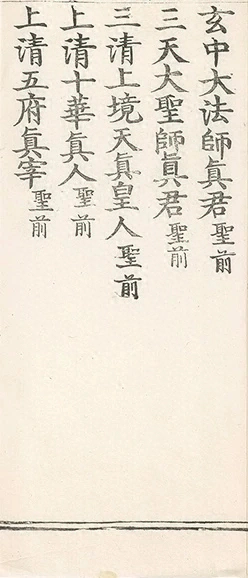 玄中大法師眞君聖前
三天大聖師眞君聖前
三清上境天眞皇人聖前
上清十華眞人聖前
上清五府眞宰聖前